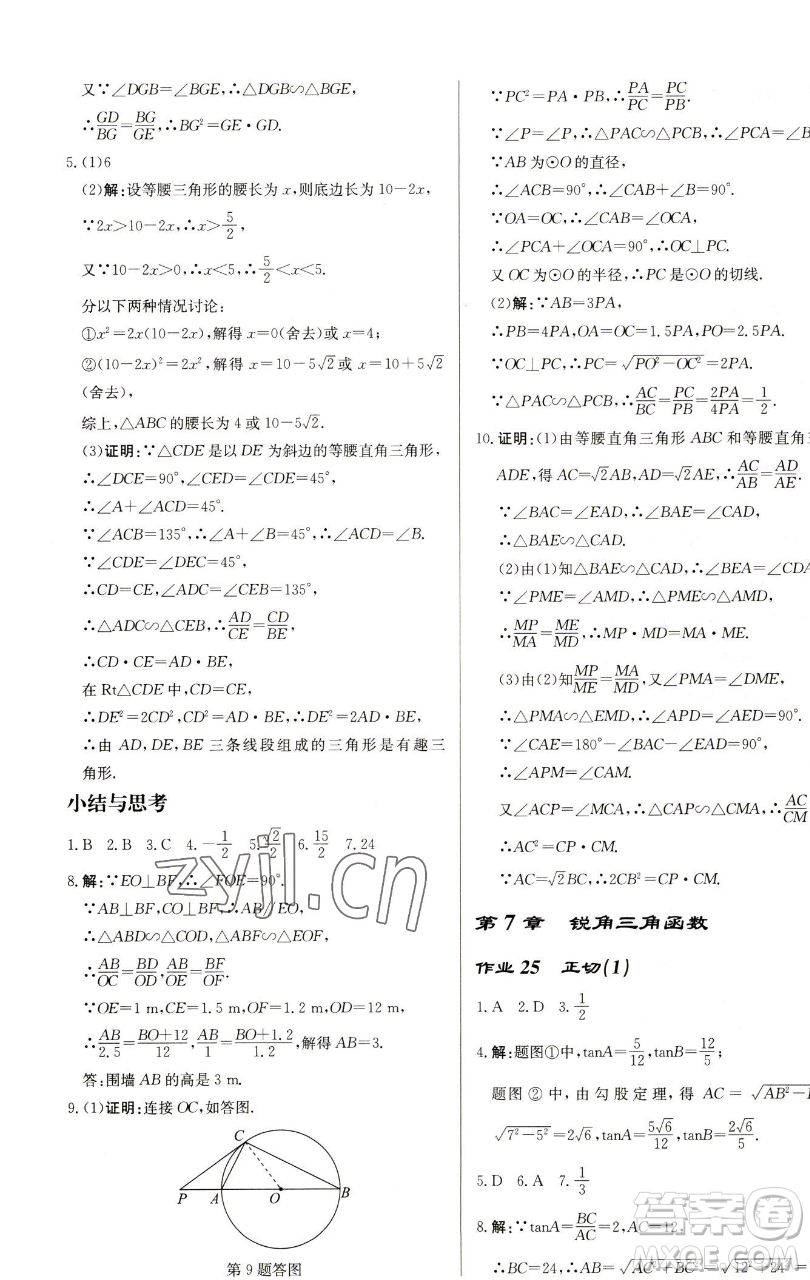 又∵∠DGB=∠BGE,∴△DGB∽△BGE,
∴GD/BG=BG/GE,∴BG²=GE·GD.
5.(1)6
(2)解:设等腰三角形的腰长为x,则底边长为10-2x,
∵2x>10-2x,∴x>5/2,
又∵10-2x>0,∴x<5,∴5/2<x<5.
分以下两种情况讨论:
①x²=2x(10-2x),解得x=0(舍去)或x=4;
②(10-2x)²=2x²,解得x=10-5√2或x=10+5√2
(舍去),
综上,△ABC的腰长为4或10-5√2.
(3)证明:∵△CDE是以DE为斜边的等腰直角三角形,
∴∠DCE=90°,∠CED=∠CDE=45°,
∴∠A+∠ACD=45°.
∵∠ACB=135°,∴∠A+∠B=45°,∴∠ACD=∠B.
∵∠CDE=∠DEC=45°,
∴CD=CE,∠ADC=∠CEB=135°,
∴△ADC∽△CEB,∴AD/CE=CD/BE,
∴CD·CE=AD·BE,
在Rt△CDE中,CD=CE,
∴DE²=2CD²,CD²=AD·BE,∴DE²=2AD·BE,
∴由AD,DE,BE三条线段组成的三角形是有趣三
角形.
小结与思考
1.B 2.B 3.C 4.-1/2 5.√2/2 6.15/2 7.24
8.解:∵EO⊥BF,∴∠FOE=90°.
∵AB⊥BF,CO⊥BF,∴AB∥CO∥EO,
∴△ABD∽△COD,△ABF∽△EOF,
∴AB/OC=BD/OD,AB/OE=BF/OF.
∵OE=1 m,CE=1.5 m,OF=1.2 m,OD=12 m,
∴AB/2.5=BO+12/12,AB/1=BO+1.2/1.2,解得AB=3.
答:围墙AB的高是3 m.
9.(1)证明:连接OC,如答图.
C
P A O B
第9题答图
∵PC²=PA·PB,∴PA/PC=PC/PB.
∵∠P=∠P,∴△PAC∽△PCB,∴∠PCA=∠
∵AB为⊙O的直径,
∴∠ACB=90°,∴∠CAB+∠B=90°.
∵OA=OC,∴∠CAB=∠OCA,
∴∠PCA+∠OCA=90°,∴OC⊥PC.
又OC为⊙O的半径,∴PC是⊙O的切线.
(2)解:∵AB=3PA,
∴PB=4PA,OA=OC=1.5PA,PO=2.5PA.
∵OC⊥PC,∴PC=√PO²-OC²=2PA.
∵△PAC∽△PCB,∴AC/BC=PC/PB=2PA/4PA=1/2.
10.证明:(1)由等腰直角三角形ABC和等腰直角三
ADE,得AC=√2AB,AD=√2AE,∴AC/AB=AD/AE.
∵∠BAC=∠EAD,∴∠BAE=∠CAD,
∴△BAE∽△CAD.
(2)由(1)知△BAE∽△CAD,∴∠BEA=∠CDA
∵∠PME=∠AMD,∴△PME∽△AMD,
∴MP/MA=ME/MD,∴MP·MD=MA·ME.
(3)由(2)知MP/ME=MA/MD,又∠PMA=∠DME,
∴△PMA∽△EMD,∴∠APD=∠AED=90°.
∵∠CAE=180°-∠BAC-∠EAD=90°,
∴∠APM=∠CAM.
又∠ACP=∠MCA,∴△CAP∽△CMA,∴AC/CM
∴AC²=CP·CM.
∵AC=√2BC,∴2CB²=CP·CM.
第7章 锐角三角函数
作业25 正切(1)
1.A 2.D 3.1/2
4.解:题图①中,tanA=5/12,tanB=12/5;
题图②中,由勾股定理,得AC=√AB²-
√7²-5²=2√6,tanA=5√6/12,tanB=2√6/5.
5.D 6.A 7.1/3
8.解:∵tanA=BC/AC=2,AC=12.
∴BC=24,∴AB=√AC²+BC²=√12²+24²=
zyjl.cn
答案卷